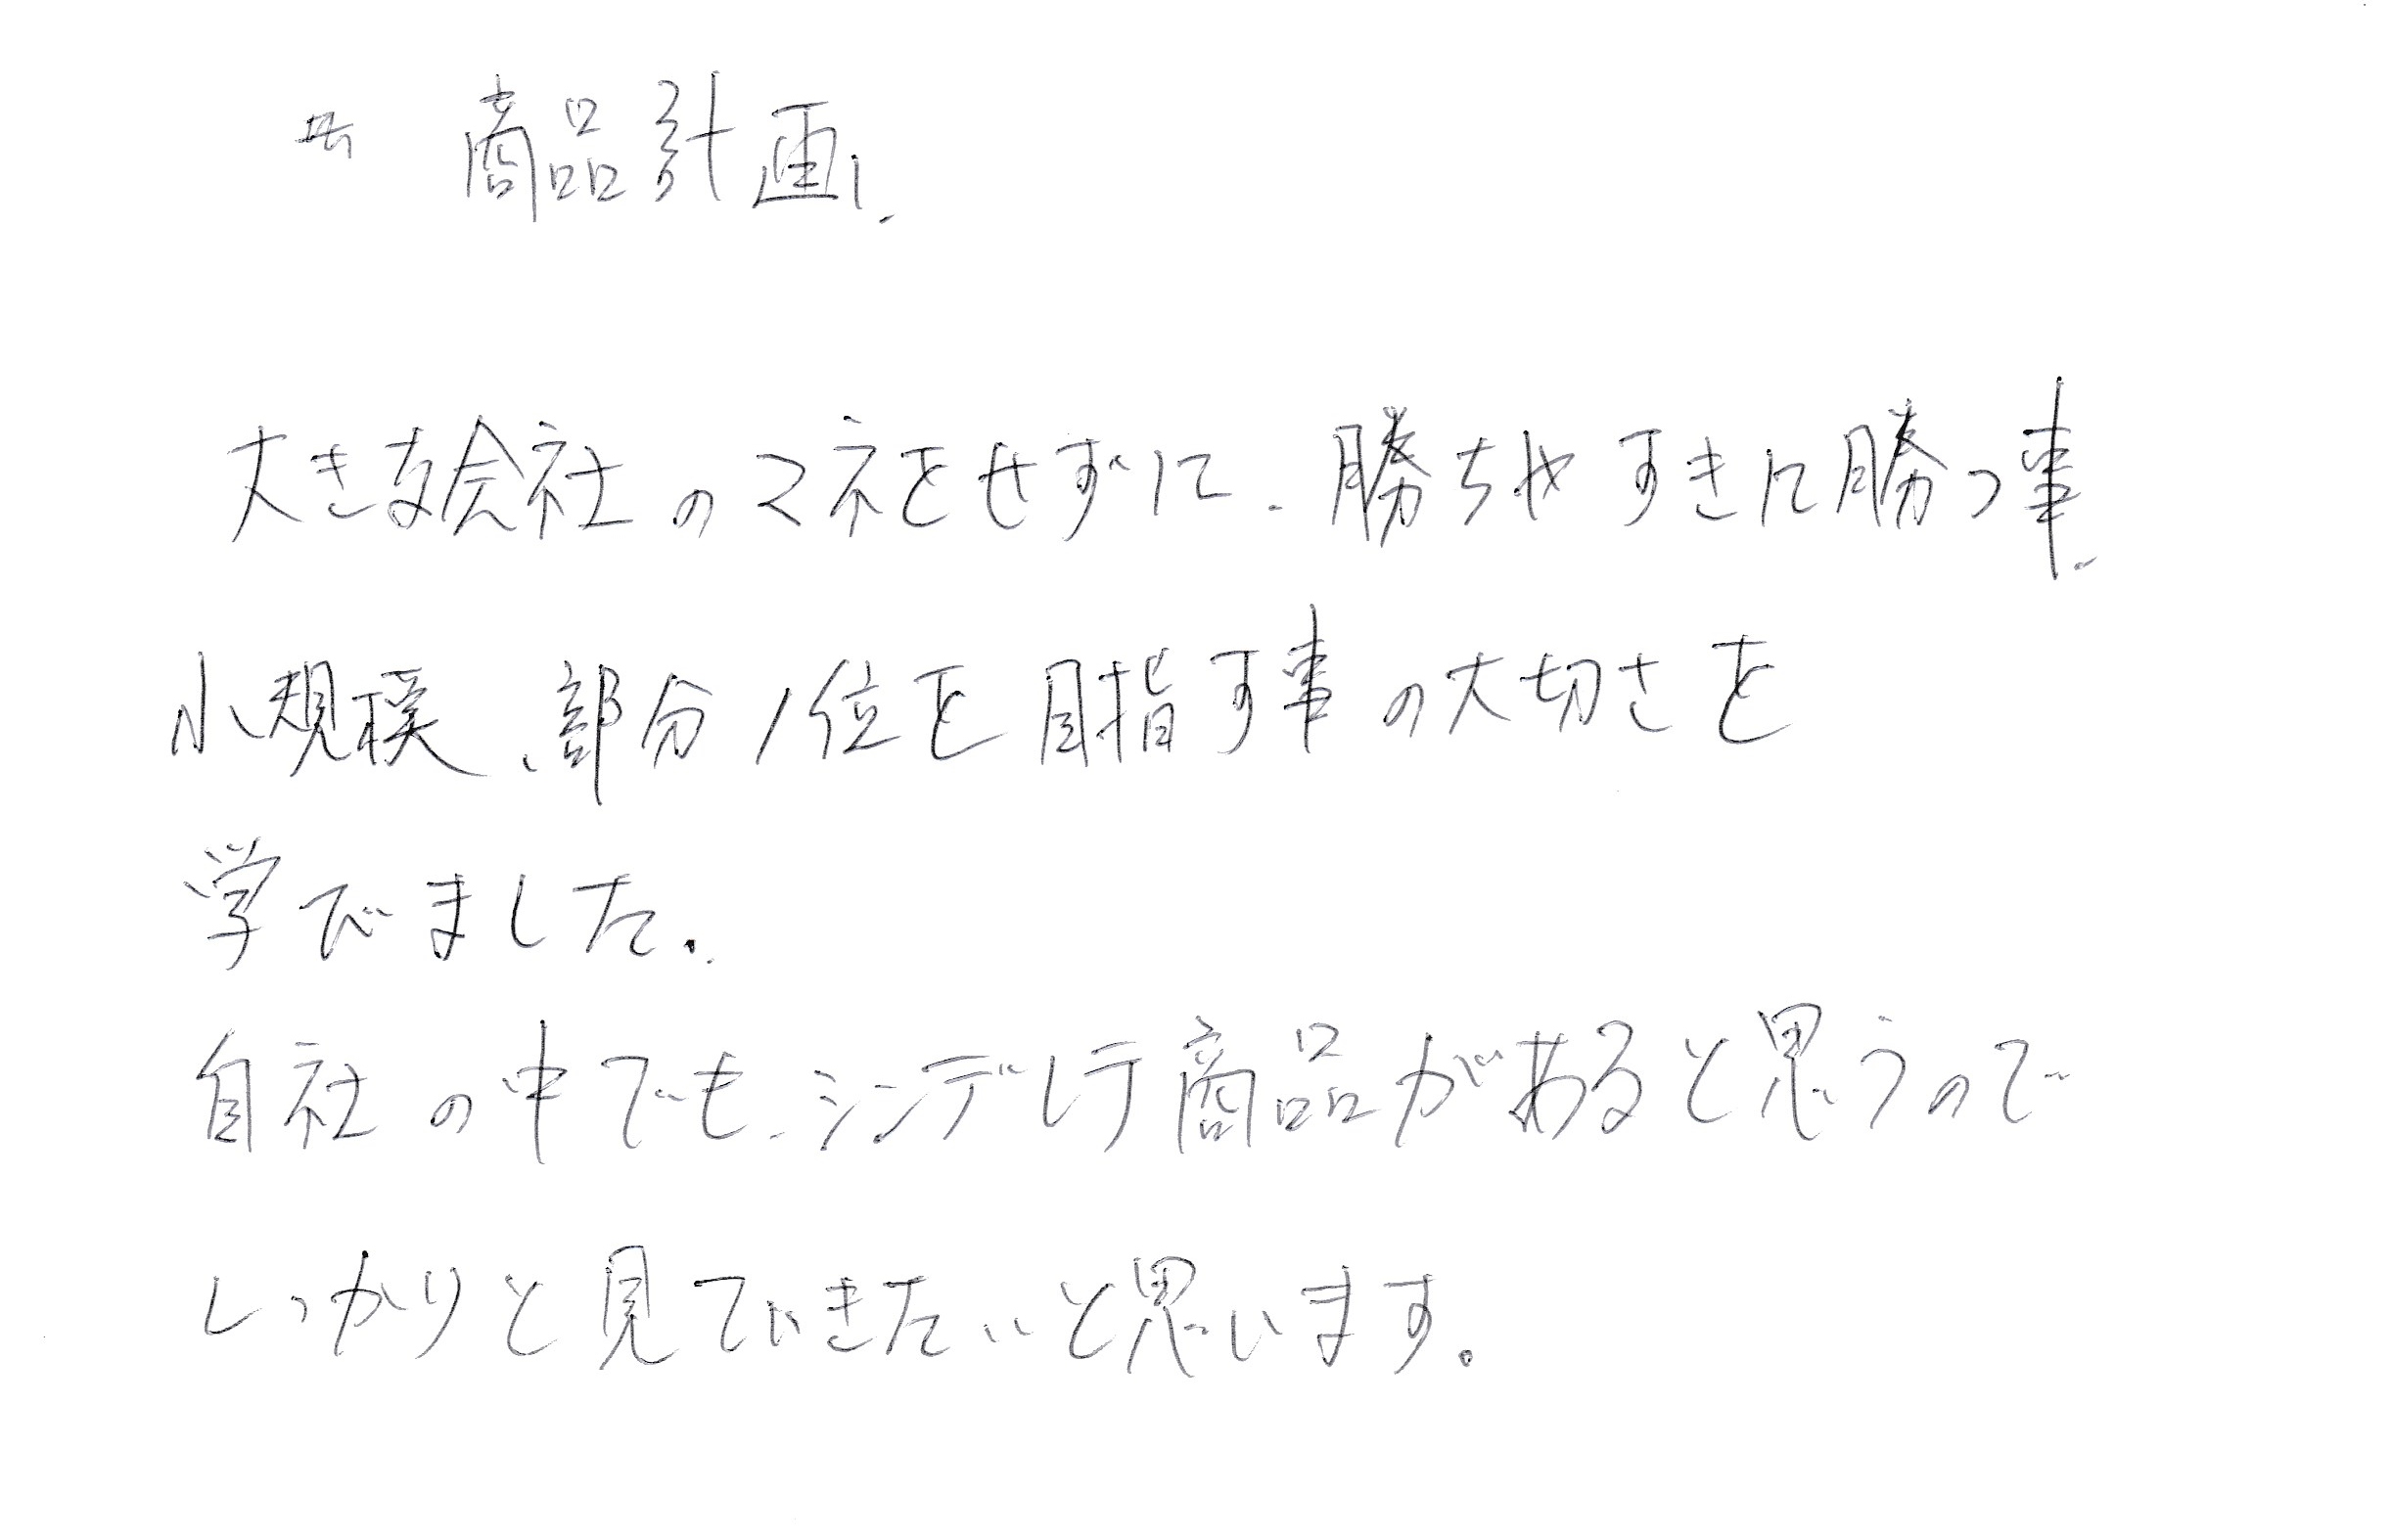 # 商品計画、
大きな会社のマネをせずに、勝ちやすきに勝つ事、
小規模、部分1位を目指す事の大切さを
学びました。
自社の中でも、シンデレラ商品があると思うので
しっかりと見ていきたいと思います。